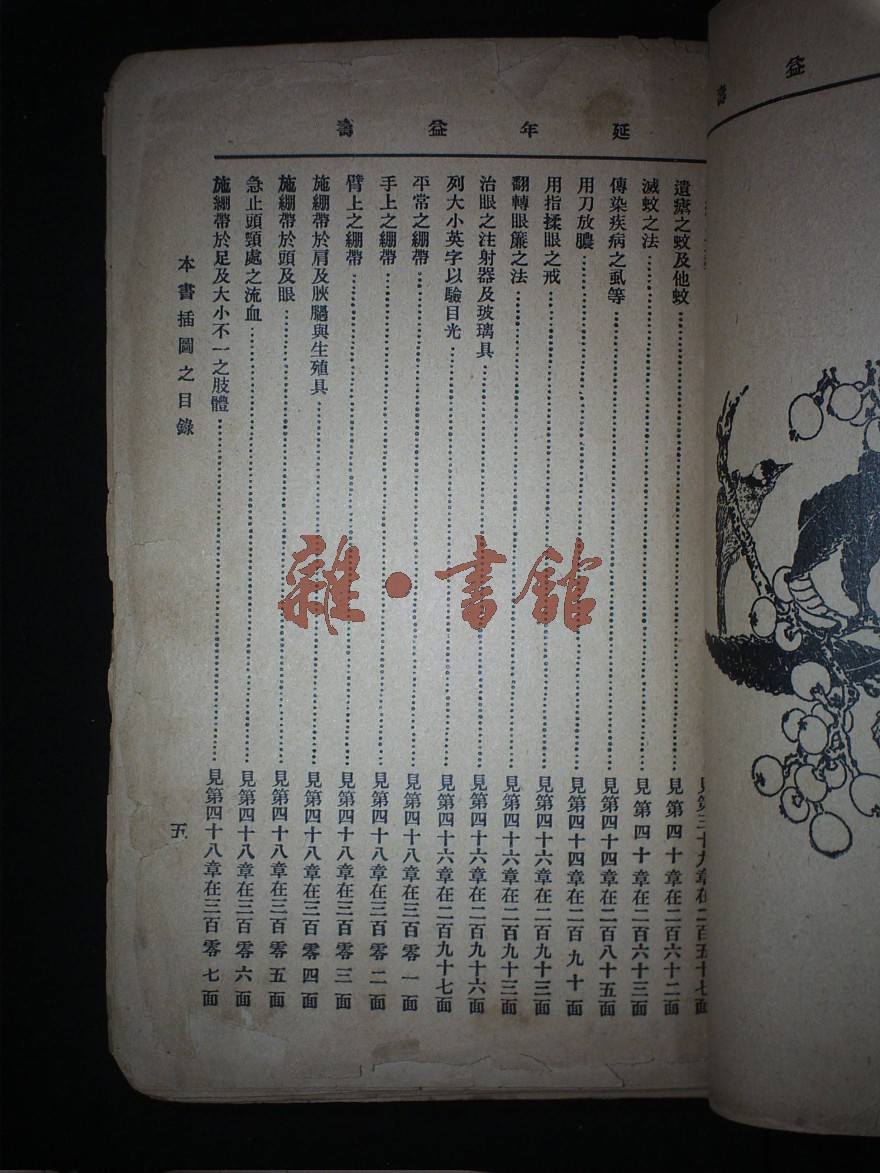 延年益壽
見第三十九章在二百五十七面
遺瘧之蚊及他蚊……見第四十章在二百六十二面
滅蚊之法……見第四十章在二百六十三面
傳染疾病之虱等……見第四十四章在二百八十五面
用刀放膿……見第四十四章在二百九十面
用指揉眼之戒……見第四十六章在二百九十三面
翻轉眼簾之法……見第四十六章在二百九十三面
治眼之注射器及玻璃具……見第四十六章在二百九十六面
列大小英字以驗目光……見第四十六章在二百九十七面
平常之綳帶……見第四十八章在三百零一面
手上之綳帶……見第四十八章在三百零二面
臂上之綳帶……見第四十八章在三百零三面
施綳帶於肩及脥腿與生殖具……見第四十八章在三百零四面
施綳帶於頭及眼……見第四十八章在三百零五面
急止頭頸處之流血……見第四十八章在三百零六面
施綳帶於足及大小不一之肢體……見第四十八章在三百零七面
本書插圖之目錄
五
益
壽
雜·書館